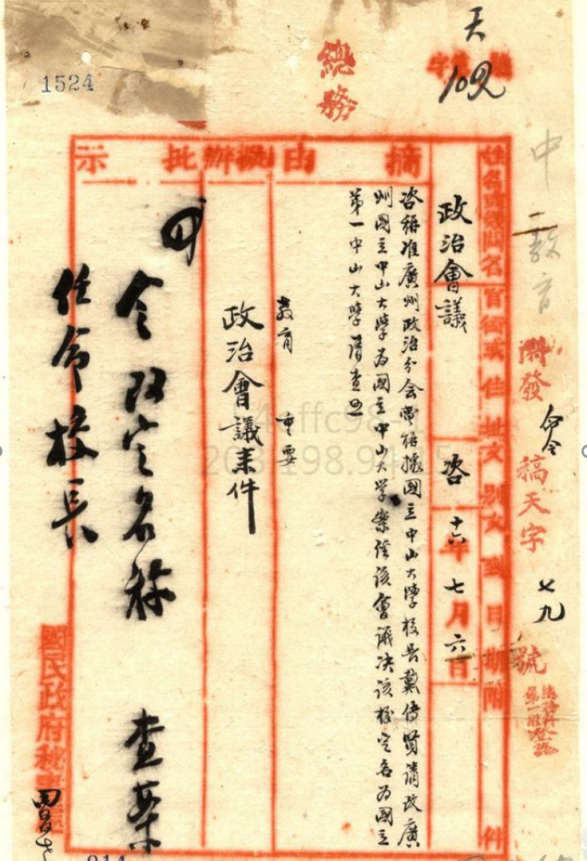 天
字 號
109
總務
1524
中
教育
發 命令 稿天字 七九 號
姓名或機關名 官銜或住址 文別 文到日期 附 件
政治會議
咨
十六年七月六日
摘由
咨稱准廣州政治分會電稱據國立中山大學校長戴傳賢請改廣
州國立中山大學為國立中山大學案經該會議決該校定名為國立
第一中山大學請查照
擬辦
教育 重要
政治會議案件
批示
令改定名称 查案
任命校長
國民政府秘書處
214